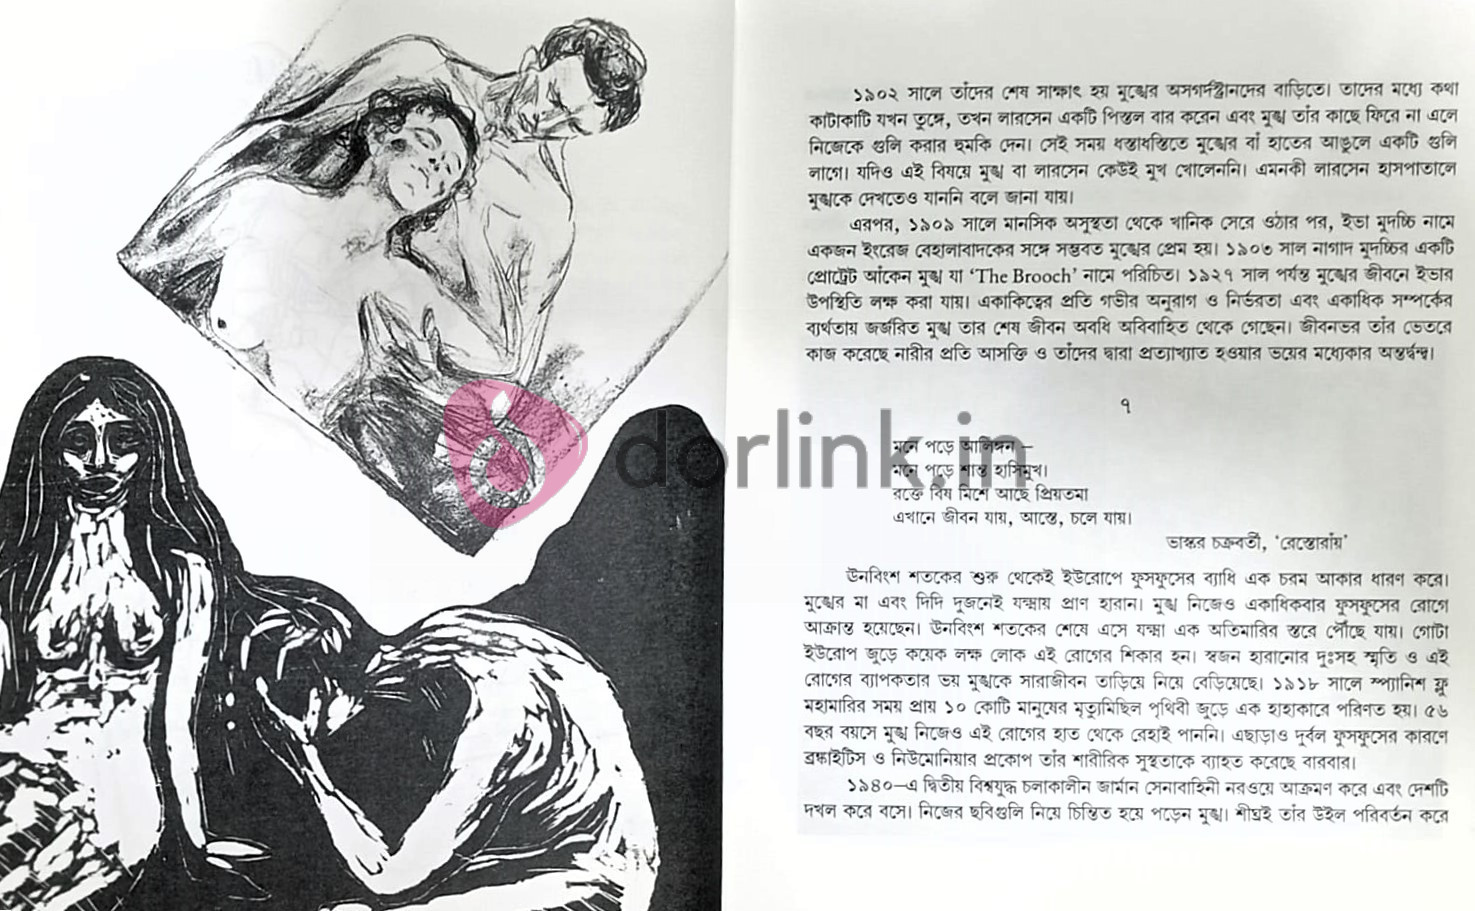 ১৯০২ সালে তাঁদের শেষ সাক্ষাৎ হয় মুঙ্খের অসগর্দস্ট্রানদের বাড়িতে। তাদের মধ্যে কথা
কাটাকাটি যখন তুঙ্গে, তখন লারসেন একটি পিস্তল বার করেন এবং মুঙ্খ তাঁর কাছে ফিরে না এলে
নিজেকে গুলি করার হুমকি দেন। সেই সময় ধস্তাধস্তিতে মুঙ্খের বাঁ হাতের আঙুলে একটি গুলি
লাগে। যদিও এই বিষয়ে মুঙ্খ বা লারসেন কেউই মুখ খোলেননি। এমনকী লারসেন হাসপাতালে
মুঙ্খকে দেখতেও যাননি বলে জানা যায়।
এরপর, ১৯০৯ সালে মানসিক অসুস্থতা থেকে খানিক সেরে ওঠার পর, ইভা মুদচ্চি নামে
একজন ইংরেজ বেহালাবাদকের সঙ্গে সম্ভবত মুঙ্খের প্রেম হয়। ১৯০৩ সাল নাগাদ মুদচ্চির একটি
প্রোট্রেট আঁকেন মুঙ্খ যা ‘The Brooch’ নামে পরিচিত। ১৯২৭ সাল পর্যন্ত মুঙ্খের জীবনে ইভার
উপস্থিতি লক্ষ করা যায়। একাকিত্বের প্রতি গভীর অনুরাগ ও নির্ভরতা এবং একাধিক সম্পর্কের
ব্যর্থতায় জর্জরিত মুঙ্খ তার শেষ জীবন অবধি অবিবাহিত থেকে গেছেন। জীবনভর তাঁর ভেতরে
কাজ করেছে নারীর প্রতি আসক্তি ও তাঁদের দ্বারা প্রত্যাখ্যাত হওয়ার ভয়ের মধ্যেকার অন্তর্দ্বন্দ্ব।
৭
dorlink.in
মনে পড়ে আলিঙ্গন —
মনে পড়ে শান্ত হাসিমুখ।
রক্তে বিষ মিশে আছে প্রিয়তমা
এখানে জীবন যায়, আস্তে, চলে যায়।
ভাস্কর চক্রবর্তী, ‘রেস্তোরাঁয়’
ঊনবিংশ শতকের শুরু থেকেই ইউরোপে ফুসফুসের ব্যাধি এক চরম আকার ধারণ করে।
মুঙ্খের মা এবং দিদি দুজনেই যক্ষ্মায় প্রাণ হারান। মুঙ্খ নিজেও একাধিকবার ফুসফুসের রোগে
আক্রান্ত হয়েছেন। ঊনবিংশ শতকের শেষে এসে যক্ষ্মা এক অতিমারির স্তরে পৌঁছে যায়। গোটা
ইউরোপ জুড়ে কয়েক লক্ষ লোক এই রোগের শিকার হন। স্বজন হারানোর দুঃসহ স্মৃতি ও এই
রোগের ব্যাপকতার ভয় মুঙ্খকে সারাজীবন তাড়িয়ে নিয়ে বেড়িয়েছে। ১৯১৮ সালে স্প্যানিশ ফ্লু
মহামারির সময় প্রায় ১০ কোটি মানুষের মৃত্যুমিছিল পৃথিবী জুড়ে এক হাহাকারে পরিণত হয়। ৫৬
বছর বয়সে মুঙ্খ নিজেও এই রোগের হাত থেকে রেহাই পাননি। এছাড়াও দুর্বল ফুসফুসের কারণে
ব্রঙ্কাইটিস ও নিউমোনিয়ার প্রকোপ তাঁর শারীরিক সুস্থতাকে ব্যাহত করেছে বারবার।
১৯৪০–এ দ্বিতীয় বিশ্বযুদ্ধ চলাকালীন জার্মান সেনাবাহিনী নরওয়ে আক্রমণ করে এবং দেশটি
দখল করে বসে। নিজের ছবিগুলি নিয়ে চিন্তিত হয়ে পড়েন মুঙ্খ। শীঘ্রই তাঁর উইল পরিবর্তন করে